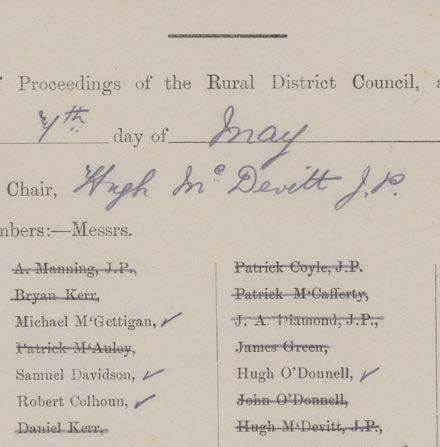 Proceedings of the Rural District Council, a
7th day of May
Chair, Hugh McDevitt J.P.
mbers:—Messrs.
A. Manning, J.P.,
Bryan Kerr,
Michael M‘Gettigan, ✓
Patrick M‘Auley,
Samuel Davidson, ✓
Robert Colhoun, ✓
Daniel Kerr,
Patrick Coyle, J.P.
Patrick M‘Cafferty,
J. A. Diamond, J.P.,
James Green,
Hugh O’Donnell, ✓
John O’Donnell,
Hugh M‘Devitt, J.P.,